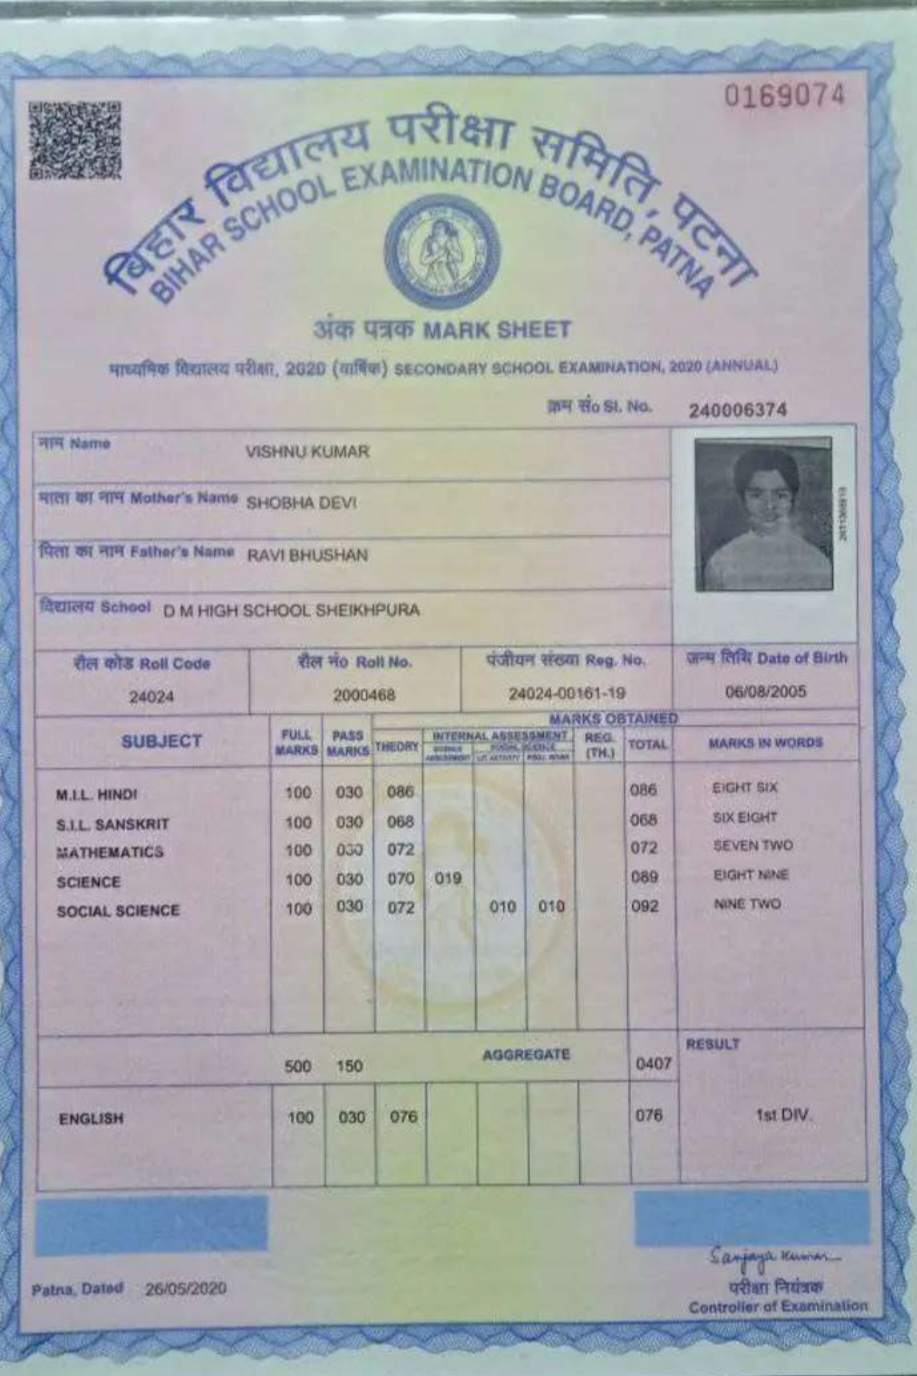 0169074
बिहार विद्यालय परीक्षा समिति, पटना
BIHAR SCHOOL EXAMINATION BOARD, PATNA
अंक पत्रक MARK SHEET
माध्यमिक विद्यालय परीक्षा, 2020 (वार्षिक) SECONDARY SCHOOL EXAMINATION, 2020 (ANNUAL)
क्रम सं० Sl. No. 240006374
नाम Name VISHNU KUMAR
माता का नाम Mother's Name SHOBHA DEVI
पिता का नाम Father's Name RAVI BHUSHAN
विद्यालय School D M HIGH SCHOOL SHEIKHPURA
रौल कोड Roll Code रौल नं० Roll No. पंजीयन संख्या Reg. No. जन्म तिथि Date of Birth
24024 2000468 24024-00161-19 06/08/2005
MARKS OBTAINED
SUBJECT FULL MARKS PASS MARKS THEORY INTERNAL ASSESSMENT REG. (TH.) TOTAL MARKS IN WORDS
SOCIAL SCIENCE
M.I.L. HINDI 100 030 086 086 EIGHT SIX
S.I.L. SANSKRIT 100 030 068 068 SIX EIGHT
MATHEMATICS 100 030 072 072 SEVEN TWO
SCIENCE 100 030 070 019 089 EIGHT NINE
SOCIAL SCIENCE 100 030 072 010 010 092 NINE TWO
500 150 AGGREGATE 0407 RESULT
ENGLISH 100 030 076 076 1st DIV.
Sanjaya Kumar
Patna, Dated 26/05/2020 परीक्षा नियंत्रक
Controller of Examination